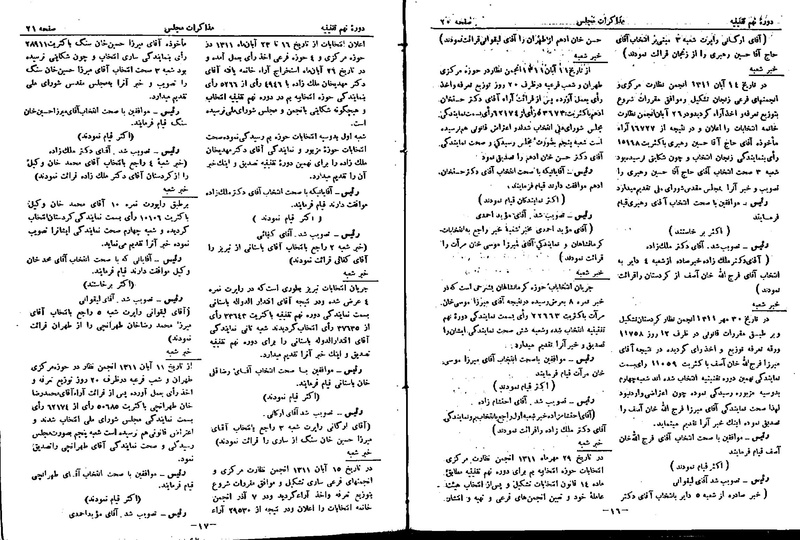 دورهٔ نهم تقنینیه
مذاکرات مجلس
صفحه ۲۰
( آقای اورنگی راپرت شعبه ۳ مبنی بر انتخاب
حاج آقا حسین رهبری را از زنجان قرائت نمودند )
خبر شعبه
در تاریخ ۱۴ آبان ۱۳۱۱ انجمن نظارت مرکزی
انجمنهای فرعی زنجان تشکیل و موافق مقررات شروع
مأخوذه آقای حاج آقا حسین رهبری باکثریت ۱۵۶۶۸
رأی بنمایندگی زنجان انتخاب و چون شکایتی نرسیده بود
شعبه ۳ صحت انتخاب آقای حاج آقا حسین رهبری را
تصویب و خبر آنرا بمجلس مقدس شورای ملی تقدیم میدارد
رئیس ـ موافقین با صحت انتخاب آقای رهبری قیام
فرمایند
( اکثر برخاستند )
رئیس ـ تصویب شد . آقای دکتر ملک زاده
( آقای دکتر ملک زاده خبر صادره از شعبه ۴ دایر به
انتخاب آقای فرج الله خان آصف از کردستان را قرائت
نمودند )
خبر شعبه
در تاریخ ۳۰ مهر ۱۳۱۱ انجمن نظار کردستان تشکیل
و بر طبق مقررات قانونی در ظرف ۱۲ روز ۱۱۷۵۸
ورقه تعرفه توزیع و اخذ رای گردیده در نتیجه آقای
میرزا فرج الله خان آصف با کثریت ۱۱۰۵۹ رای بسمت
نمایندگی نهمین دوره تقنینیه انتخاب شده اند شعبه چهارم
بدوسیه مزبوره رسیدگی نموده چون اعتراضی وارد نبود
لهذا صحت نمایندگی آقای میرزا فرج الله خان آصف را
تصدیق نموده اینک خبر آنرا تقدیم مینماید.
رئیس ـ موافقین با صحت انتخاب آقای فرج الله خان
آصف قیام فرمایند
( اکثر قیام نمودند )
رئیس ـ تصویب شد . آقای لیقوانی
( خبر صادره از شعبه ۵ دایر بانتخاب آقای دکتر
حسن خان ادهم از طهران را آقای لیقوانی قرائت نمودند )
خبر شعبه
از تاریخ ۱۱ آبان ۱۳۱۱ انجمن نظار در حوزه مرکزی
طهران و شعب فرعیه در ظرف ۲۰ روز توزیع تعرفه و اخذ
دکتر حسن خان ادهم را تصدیق نمود
رئیس ـ آقایانیکه با صحت انتخاب آقای دکتر حسنخان
ادهم موافقت دارند قیام فرمایند.
( اکثر نمایندگان قیام نمودند )
رئیس ـ تصویب شد . آقای مؤید احمدی
( آقای مؤید احمدی مخبر شعبه خبر راجع به انتخابات
کرمانشاهان و نمایندگی آقای میرزا موسی خان مرآت را
قرائت نمودند )
خبر شعبه
جریان انتخابات حوزه کرمانشاهان بشرحی است که در
خبر نمره ۸ بعرض رسیده در نتیجه آقای میرزا موسی خان
مرآت باکثریت ۲۲۶۶۳ رأی بسمت نمایندگی دورهٔ نهم
تقنینیه انتخاب شده و شعبه شش صحت نمایندگی ایشان را
تصدیق و خبر آنرا تقدیم میدارد
رئیس ـ موافقین با صحت انتخاب آقای میرزا موسی
خان مرآت قیام فرمایند
( اکثر قیام نمودند )
رئیس ـ تصویب شد . آقای احتشام زاده
آقای دکتر ملک زاده را قرائت نمودند )
خبر شعبه
در تاریخ ۲۹ مهرماه ۱۳۱۱ انجمن نظارت مرکزی
انتخابات حوزه انتخابیه بم برای دوره نهم تقنینیه مطابق
ماده ۱۴ قانون انتخابات تشکیل و پس از انتخاب هیئت
عامله خود و تعیین انجمن‌های فرعی و تهیه و انتشار
ـ۱۶ـ
دورهٔ نهم تقنینیه
مذاکرات مجلس
صفحه ۲۱
اعلان انتخابات از تاریخ ۱۶ تا ۲۳ آبان ماه ۱۳۱۱ در
حوزه مرکزی و ۴ حوزه فرعی اخذ رأی بعمل آمده و
در تاریخ ۲۹ آبان‌ماه استخراج آراء خاتمه یافته آقای
دکتر مهدیخان ملک زاده با ۴۹۴۶ رأی از ۵۲۶۶ رأی
بنمایندگی حوزه انتخابیه بم در دوره نهم تقنینیه انتخاب
و هیچگونه شکایتی بانجمن و مجلس شورای ملی نرسیده
شعبه اول بدوسیه انتخابات حوزه بم رسیدگی نموده صحت
انتخابات حوزه مزبوره و نمایندگی آقای دکتر مهدیخان
ملک زاده را برای نهمین دورهٔ تقنینیه تصدیق و اینک خبر
آن را تقدیم میدارد.
رئیس ـ آقایانیکه با صحت انتخاب آقای دکتر ملک زاده
موافقت دارند قیام فرمایند.
( اکثر قیام نمودند )
رئیس ـ تصویب شد . آقای کفائی
( خبر شعبه ۲ راجع بانتخاب آقای باستانی از تبریز را
آقای کفائی قرائت نمودند )
خبر شعبه
جریان انتخابات تبریز بطوری است که در راپرت نمره
۴ عرض شده و در نتیجه آقای اقتدار الدوله باستانی
بسمت نمایندگی دوره نهم تقنینیه باکثریت ۳۳۶۴۳ رأی
از ۳۷۷۳۵ رأی انتخاب گردیدند شعبه ثانی نمایندگی
آقای اقتدارالدوله باستانی را برای دوره نهم تقنینیه
تصدیق و اینک خبر آنرا تقدیم میدارد
خان باستانی قیام فرمایند.
( اکثر قیام نمودند )
رئیس ـ تصویب شد. آقای اورنگی .
( آقای اورنگی راپرت شعبه ۳ راجع بانتخاب آقای
میرزا حسین خان سنگ از ساری را قرائت نمودند )
خبر شعبه
در تاریخ ۱۵ آبان ۱۳۱۱ انجمن نظارت مرکزی و
انجمنهای فرعی ساری تشکیل و موافق مقررات شروع
بتوزیع تعرفه و اخذ آراء گردید و در ۷ آذر انجمن
خاتمه انتخابات را اعلان و در نتیجه از ۲۹۵۳۰ آراء
مأخوذه آقای میرزا حسین‌خان سنگ باکثریت ۲۸۹۱۱
رأی بنمایندگی ساری انتخاب و چون شکایتی نرسیده
بود شعبه ۳ صحت انتخاب آقای میرزا حسین خان سنگ
را تصویب و خبر آنرا به‌مجلس مقدس شورای ملی
تقدیم میدارد.
رئیس ـ موافقین با صحت انتخاب آقای میرزاحسین‌خان
سنگ قیام فرمایند.
( اکثر قیام نمودند )
رئیس ـ تصویب شد. آقای دکتر ملک‌زاده
( خبر شعبهٔ ۴ راجع بانتخاب آقای محمد خان وکیل
را از کردستان آقای دکتر ملک زاده قرائت نمودند )
خبر شعبه
برطبق راپورت نمره ۱۰ آقای محمد خان وکیل
باکثریت ۱۰۱۰۶ رأی بسمت نمایندگی کردستان انتخاب
گردیده و شعبه چهارم صحت نمایندگی ایشانرا تصویب
نموده خبر آنرا تقدیم می‌نماید.
رئیس ـ آقایانی که با صحت انتخاب آقای محمد خان
وکیل موافقت دارند قیام فرمایند.
( اکثر برخاستند )
رئیس ـ تصویب شد . آقای لیقوانی
( آقای لیقوانی راپرت شعبه ۵ راجع بانتخاب آقای
میرزا محمد رضاخان طهرانچی را از طهران قرائت
نمودند )
خبر شعبه
از تاریخ ۱۱ آبان ۱۳۱۱ انجمن نظار در حوزه مرکزی
طهران و شعب فرعیه در ظرف ۲۰ روز توزیع تعرفه و
اخذ رأی بعمل آمده پس از قرائت آراء آقای محمدرضا
خان طهرانچی باکثریت ۵۰۶۸۵ رأی از ۶۲۱۷۴ رأی
بسمت نمایندگی مجلس شورای ملی انتخاب شدند و
اعتراض قانونی هم نرسیده است شعبه پنجم بصورت مجلس
رسیدگی و صحت نمایندگی آقای طهرانچی را تصدیق
نمود.
رئیس ـ موافقین با صحت انتخاب آقای طهرانچی
قیام فرمایند.
(اکثر قیام نمودند)
رئیس ـ تصویب شد. آقای مؤیداحمدی
ـ۱۷ـ